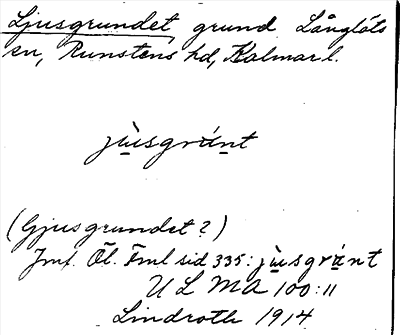 Ljusgrundet, grund Långlöts
sn, Runstens hd, Kalmar l.
jùsgránt
(Gjusgrundet?)
Jmf. Öl. Fml sid 335: jùsgránt
ULMA 100:11
Lindroth 1914